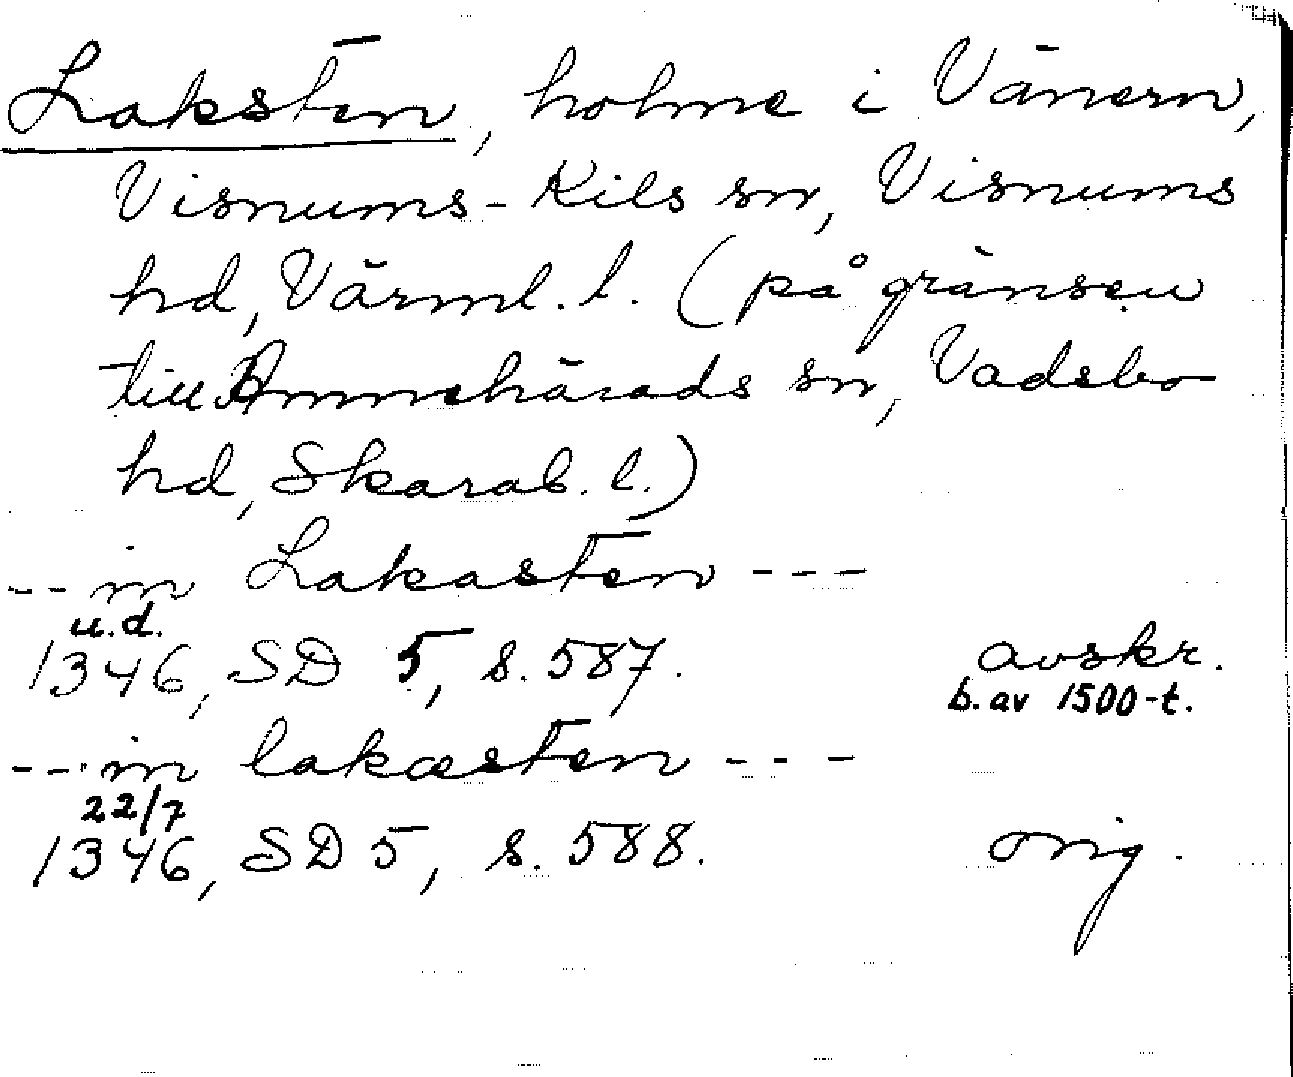 Laksten, holme i Vänern,
Visnums-Kils sn, Visnums
hd, Värml. l. (på gränsen
till Amnehärads sn, Vadsbo
hd, Skarab. l.)
--in Lakasten ---
u.d.
1346, SD 5, s. 587. avskr.
b. av 1500-t.
--in lakæsten ---
22/7
1346, SD 5, s. 588. orig.